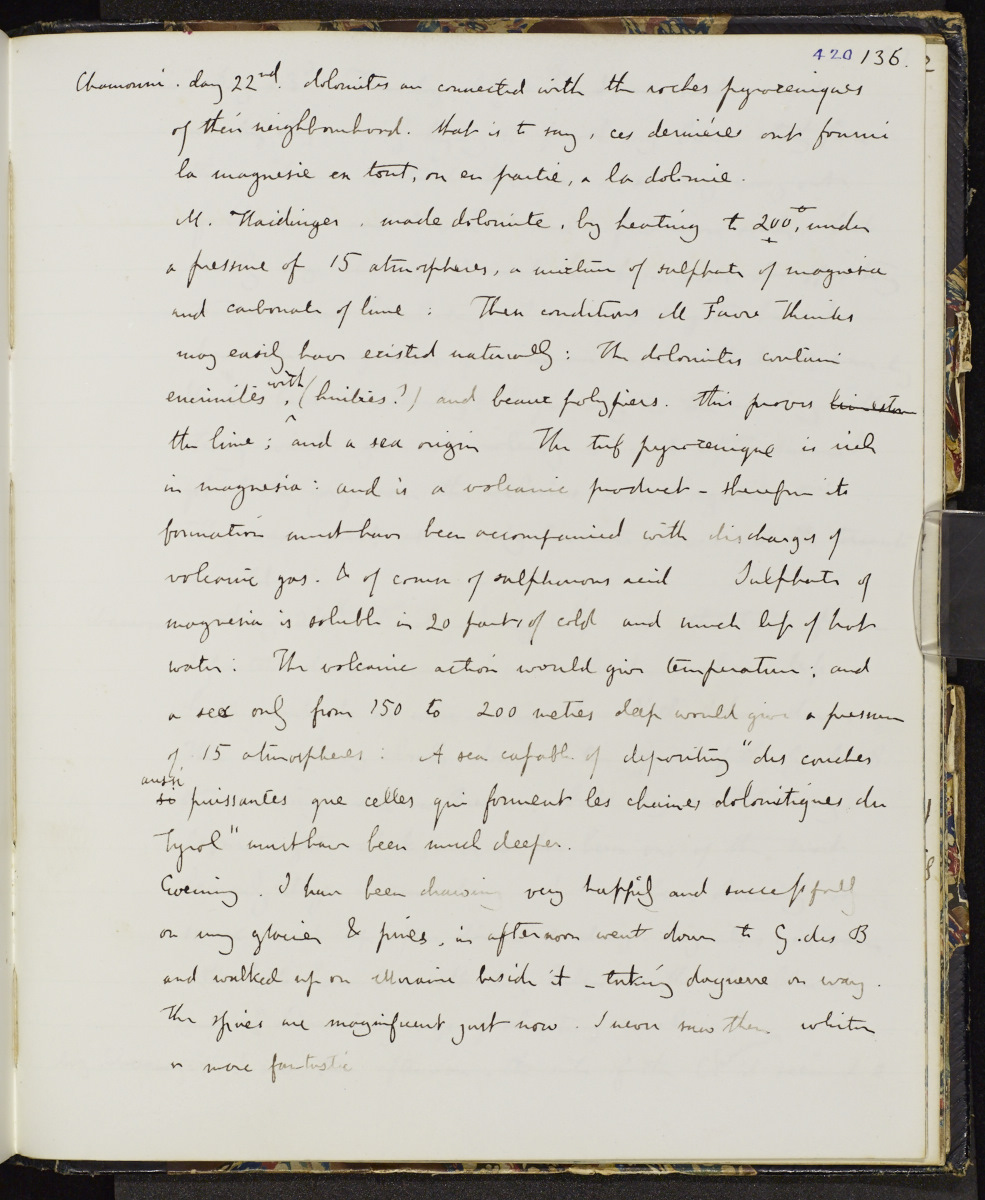 420 136.
Chamouni. day 22nd. dolomites are connected with the roches pyroxeniques
of their neighbourhood. that is to say, ces dernières ont fourni
la magnesie en tout, ou en partie, a la dolomie.
M. Haidinger. made dolomite, by heating to 200°, under
a pressure of 15 atmospheres, a mixture of sulphate of magnesia
and carbonate of lime : These conditions M Favre thinks
may easily have existed naturally : The dolomites contain
encrinites with, (huitres?) and beaux polypiers. this proves limestone
the lime ; and a sea origin The tuf pyroxenique is rich
in magnesia : and is a volcanic product - therefore its
formation must have been accompanied with discharges of
volcanic gas. & of course of sulphurous acid Sulphate of
magnesia is soluble in 20 parts of cold and much less of hot
water : The volcanic action would give temperature ; and
a sea only from 150 to 200 metres deep would give a pressure
of 15 atmospheres : A sea capable of depositing "des couches
aussi
si puissantes que celles qui forment les chaines dolomitiques du
Tyrol" must have been much deeper.
Evening. I have been drawing very happily and successfully
on my glacier & pines, in afternoon went down to G. des B
and walked up on Moraine beside it - taking daguerre on way.
The spires are magnificent just now. I never saw them whiter
or more fantastic